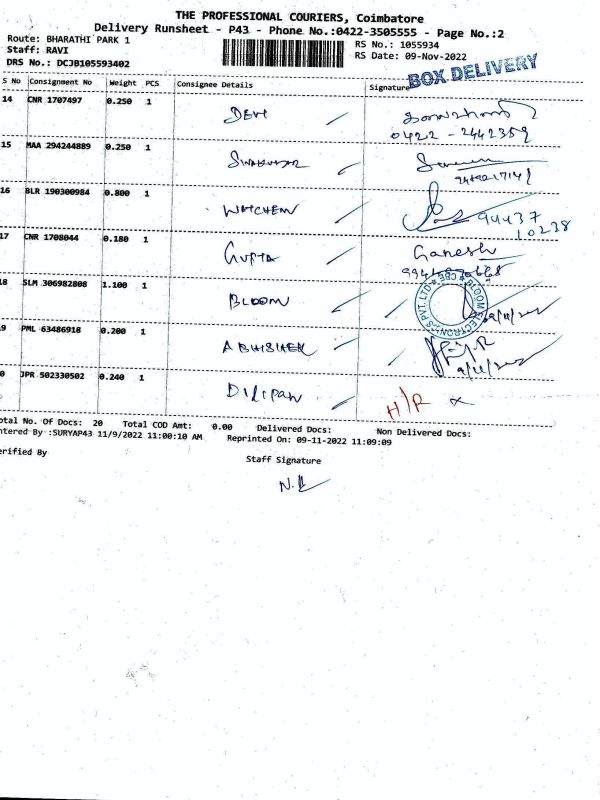 THE PROFESSIONAL COURIERS, Coimbatore
Delivery Runsheet - P43 - Phone No.:0422-3505555 - Page No.:2
Route: BHARATHI PARK 1
Staff: RAVI
DRS No.: DCJB105593402
RS No.: 1055934
RS Date: 09-Nov-2022
BOX DELIVERY
S No Consignment No Weight PCS Consignee Details Signature
14 CNR 1707497 0.250 1 DEVI
0422 - 2442359
15 MAA 294244889 0.250 1 SIVAKUMAR
16 BLR 190300984 0.800 1 WATCHEM 94437
10238
17 CNR 1708044 0.180 1 GUPTA Ganesh
8 SLM 306982808 1.100 1 BLOOM
BLOOM ELECTRONICS PVT.LTD CBE
9 PML 63486918 0.200 1 ABHISHEK
0 JPR 502330502 0.240 1 DILIPAN H/R
otal No. Of Docs: 20 Total COD Amt: 0.00 Delivered Docs: Non Delivered Docs:
ntered By :SURYAP43 11/9/2022 11:00:10 AM Reprinted On: 09-11-2022 11:09:09
erified By
Staff Signature